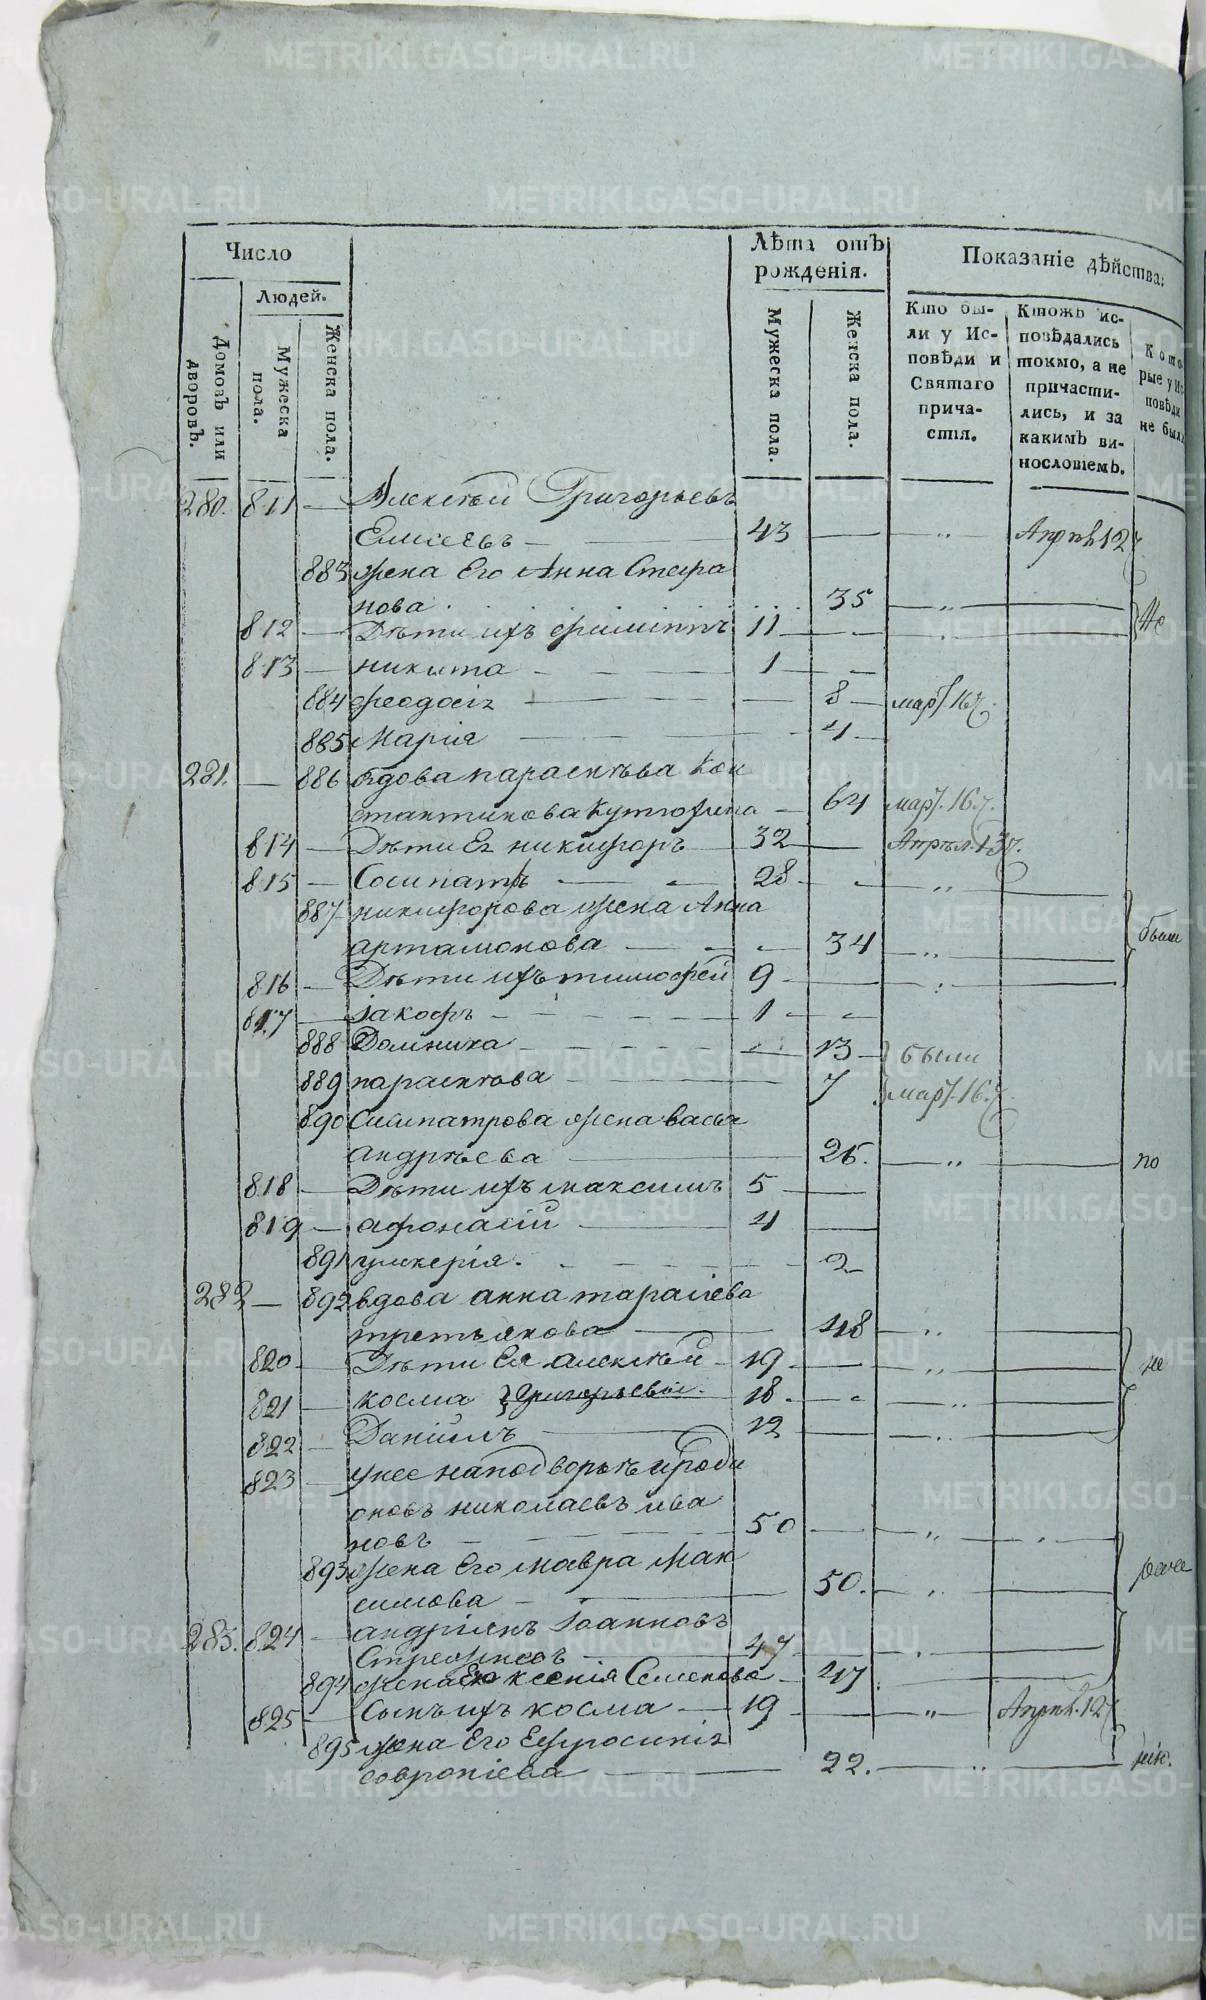 Число
Лѣта отъ рожденія.
Показаніе дѣйства:
Людей.
Домовъ или дворовъ.
Мужеска пола.
Женска пола.
Мужеска пола.
Женска пола.
Кто были у Исповѣди и Святаго причастія.
Ктожъ исповѣдались токмо, а не причастились, и за какимъ винословіемъ.
Которые у Исповѣди не были
280. 811 — Алексѣй Григорьевъ
Елисеевъ — 43 — „ Апрѣл 12
883 жена Его Анна Стефа
нова . 35 — „ —
812 — Дѣти ихъ филиппъ 11 — Не
813 — никита — 1 —
884 феодосіа — 8 — март 16.
885 Марія — 4 —
281. — 886 вдова параскѣва Кон
стантинова Кутюхина — 64 март. 16.
814 — Дѣти Ея никифоръ — 32 — Апрѣл. 13.
815 — Сосипатръ — 28 — „ —
887 никифорова жена Анна
артамонова — 34 — „ — были
816 — Дѣти ихъ тимофей 9 — „ —
817 — іаковъ — 1 —
888 Домника — 13 — были
889 параскѣва — 7 март. 16.
890 Сосипатрова жена васса
андрѣева — 26. — „ — по
818 — Дѣти ихъ максимъ 5 —
819 — афонасій — 4 —
891 гликерія. — 2
282 — 892 вдова анна тарасіева
третьякова — 48 — „ —
820 — Дѣти Ея алексѣй — 19 — „ — не
821 — косма } Григорьевы. 18. — „ —
822 — Даніилъ — 12 — „ —
823 — унее наподворьѣ ироди
оновъ николаевъ ива
новъ — 50 — „ —
893 жена Его мавра Мак
симова — 50. — „ —
283. 824 — андріянъ Іоанновъ
47 — „ —
894 жена Его ксенія Семенова — 47 —
825 — Сынъ ихъ косма — 19 — „ Апрѣл. 12
895 жена Его Ефросиніа
софроніева — 22. — „ —
METRIKI.GASO-URAL.RU